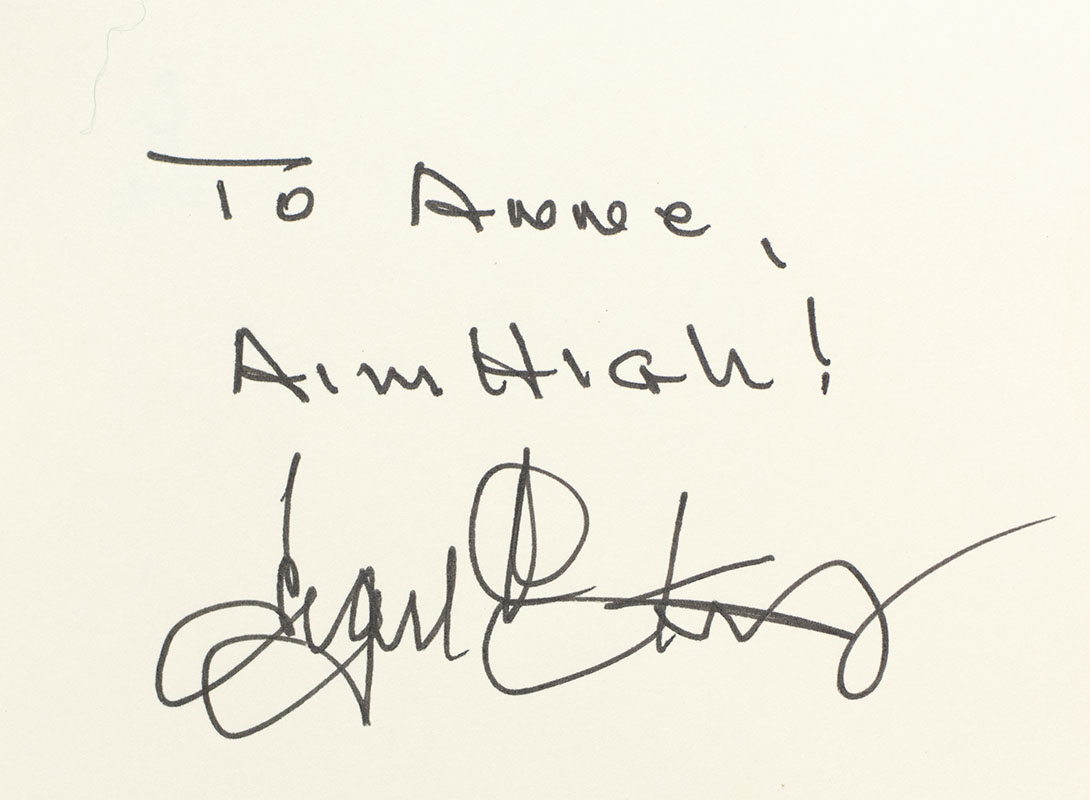 To Annee,
Aim High!